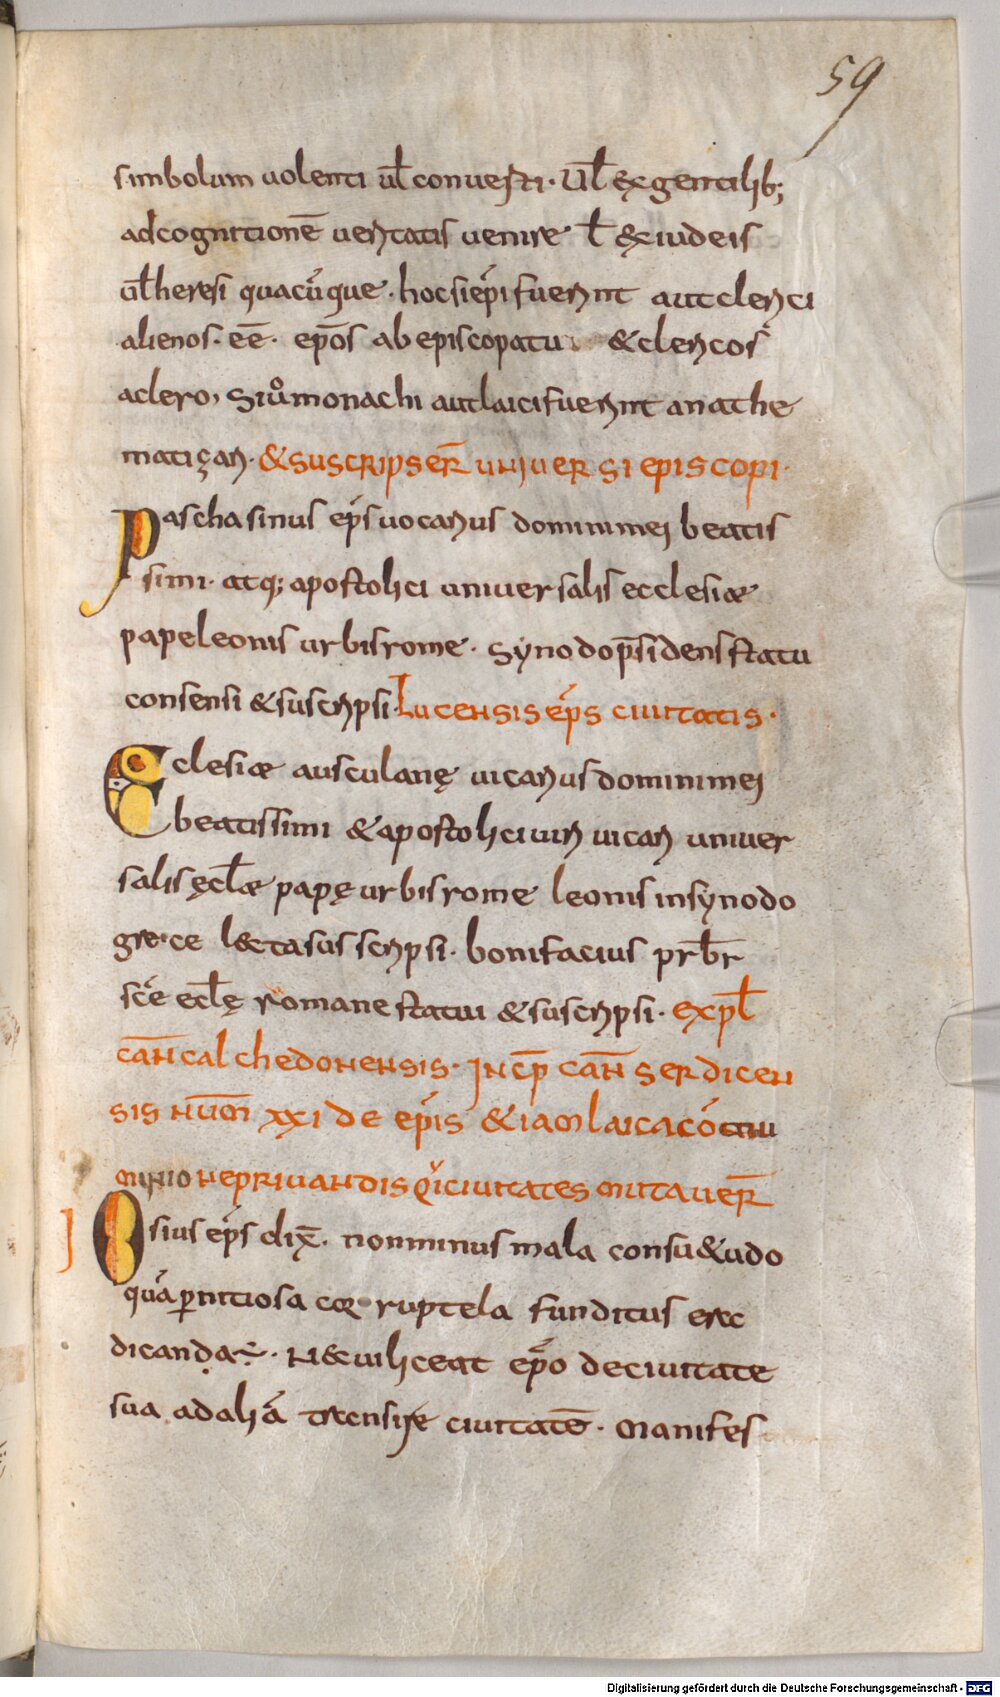 59
simbolum uolenti ul̅ conuesti. Ul̅ ex gentilib;
ad cognitionē ueritatis uenire l̅ & iudeis
ul̅ heresi quacūque. hoc si epi fuerint aut clerici
alienos. eē. epos ab episcopatu & clericos
aclero, Siuo monachi aut laici fuerint anathe
matizari. & suscripser̅ uniuersi episcopi.
Paschasinus eps uocarius domini mei beatis
simi. atq; apostolici uniuersalis ecclesiæ
pape leonis urbis rome. Synodo p̅sidens statu
consensi & suscripsi. Lucensis eps ciuitatis.
Eclesiæ ausculanę uicarius domini mei
beatissimi & apostolici uiri uicari uniuer
salis ęcl̅æ papę urbis rome leonis in synodo
grece l&ta suscripsi. bonifacius prb̅r
sce ecl̅ę romane statui & suscripsi. expl̅
can̅ calchedonensis. Incp̅ can̅ serdicen
sis num̅ xxi de epis & iam laica cōmu
nione priuandis qi ciuitates mutauer̅
I Osius eps dix̅. non minus mala consu&udo
quā pernitiosa corruptela funditus erac
dicanda ÷. N& ui liceat epo de ciuitate
sua ad aliā transire ciuitatē. Manifes
Digitalisierung gefördert durch die Deutsche Forschungsgemeinschaft - DFG